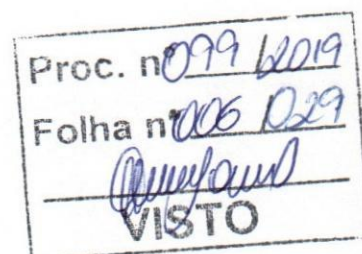 Proc. nº 099/2019
Folha nº 006/029
VISTO